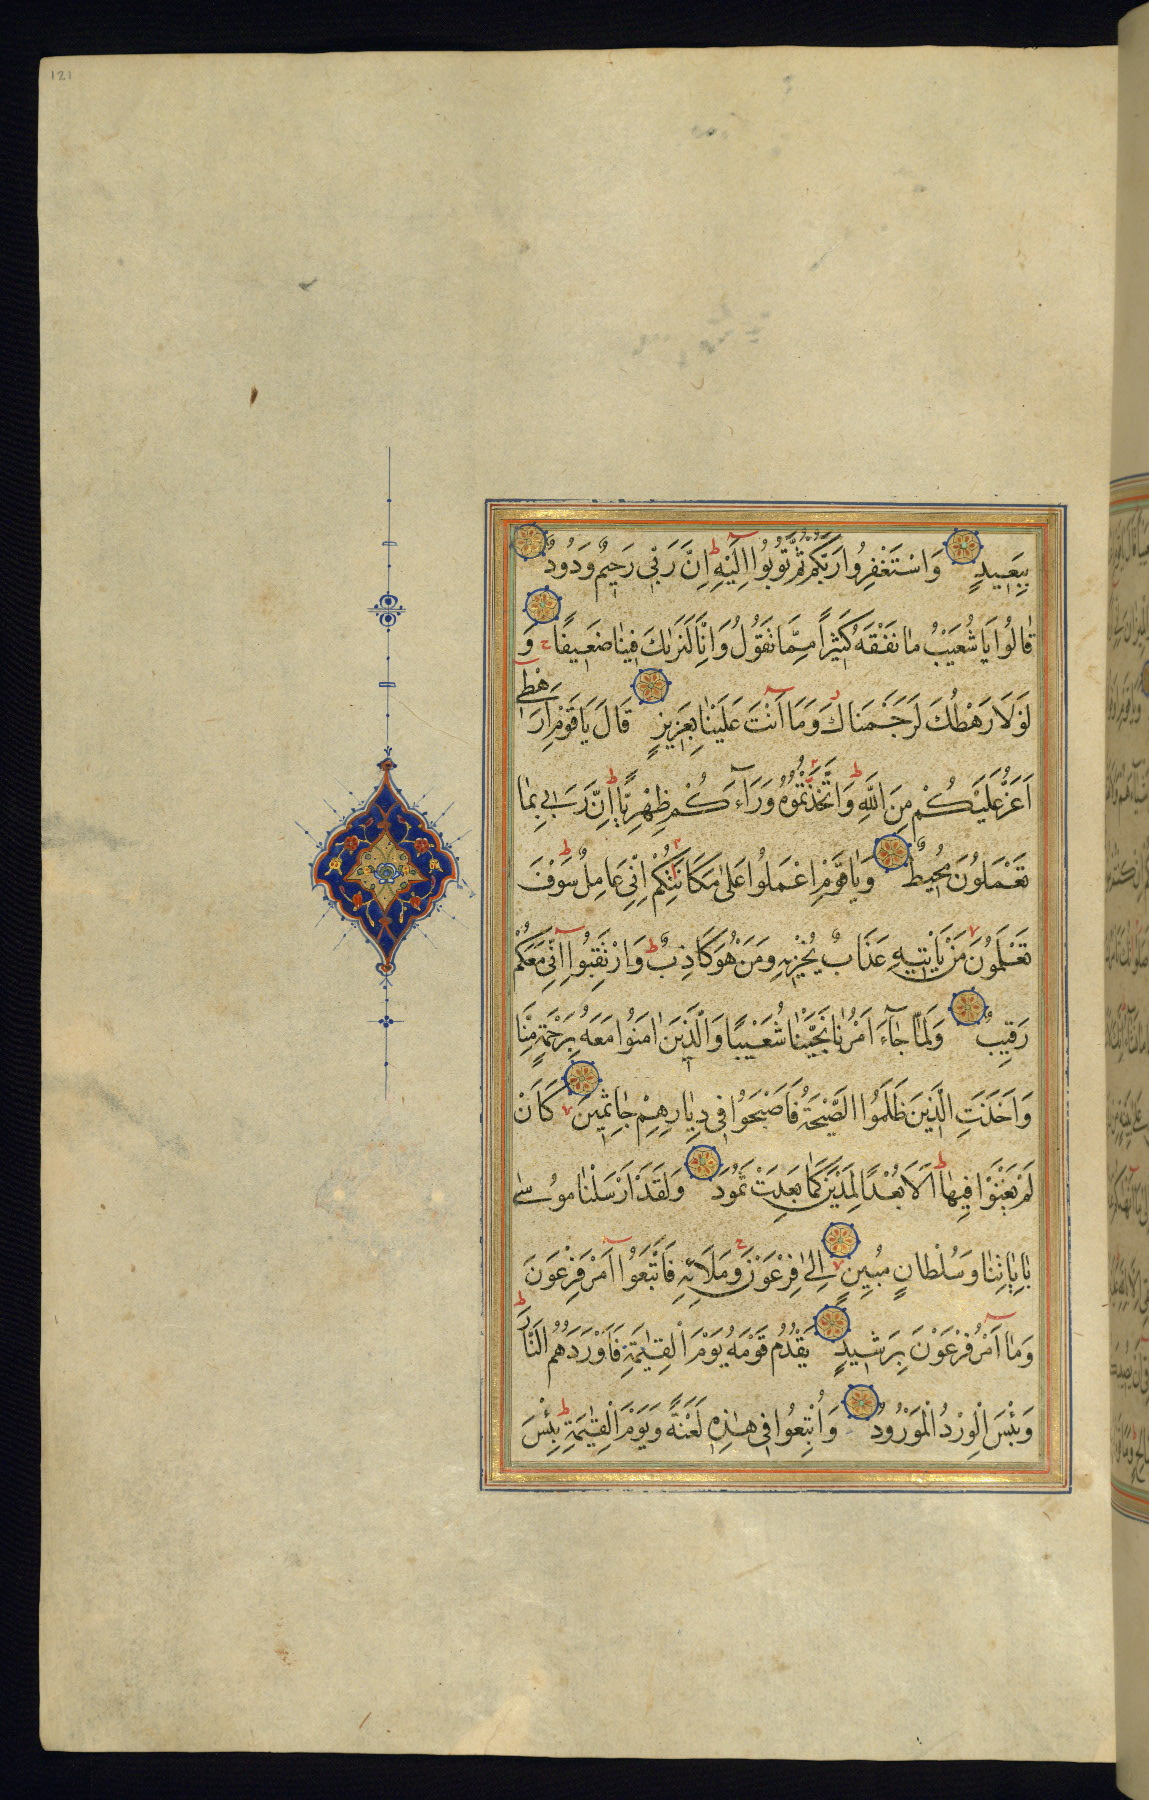 121
بِبَعِيدٍ وَاسْتَغْفِرُوا رَبَّكُمْ ثُمَّ تُوبُوا اِلَيْهِ اِنَّ رَبّٖى رَحِيمٌ وَدُودٌ
قٰالُوا يَا شُعَيْبُ مٰا نَفْقَهُ كَثِيْرًا مِمَّا تَقُولُ وَاِنَّا لَنَرٰيكَ فِينٰا ضَعٖيفًا وَ
لَوْلَا رَهْطُكَ لَرَجَمْنَاكَ وَمَا اَنْتَ عَلَيْنٰا بِعَزِيزٍ قَالَ يَا قَوْمِ اَرَهْطٖى
اَعَزُّ عَلَيْكُمْ مِنَ اللّٰهِ وَاتَّخَذْتُمُوهُ وَرَآءَكُمْ ظِهْرِيًّا اِنَّ رَبّٖى بِمٰا
تَعْمَلُونَ مُحِيطٌ وَيٰا قَوْمِ اعْمَلُوا عَلىٰ مَكَانَتِكُمْ اِنّٖى عٰامِلٌ سَوْفَ
تَعْلَمُونَ مَنْ يَاْتٖيهِ عَذَابٌ يُخْزٖيهِ وَمَنْ هُوَ كَاذِبٌ وَارْتَقِبُوا اِنّٖى مَعَكُمْ
رَقِيبٌ وَلَمّٰا جٰآءَ اَمْرُنٰا نَجَّيْنٰا شُعَيْبًا وَالَّذٖينَ اٰمَنُوا مَعَهُ بِرَحْمَةٍ مِنّٰا
وَاَخَذَتِ الَّذِينَ ظَلَمُوا الصَّيْحَةُ فَاَصْبَحُوا فٖى دِيٰارِهِمْ جٰاثِمٖينَ كَاَنْ
لَمْ يَغْنَوْا فِيهٰا اَلَا بُعْدًا لِمَدْيَنَ كَمٰا بَعِدَتْ ثَمُودُ وَلَقَدْ اَرْسَلْنٰا مُوسٰى
بِاٰيٰاتِنٰا وَسُلْطٰانٍ مُبِينٍ اِلىٰ فِرْعَوْنَ وَمَلَائِهِ فَاتَّبَعُوا اَمْرَ فِرْعَوْنَ
وَمٰا اَمْرُ فِرْعَوْنَ بِرَشٖيدٍ يَقْدُمُ قَوْمَهُ يَوْمَ الْقِيٰمَةِ فَاَوْرَدَهُمُ النَّارَ
وَبِئْسَ الْوِرْدُ الْمَوْرُودُ وَاُتْبِعُوا فٖى هٰذِهٖ لَعْنَةً وَيَوْمَ الْقِيٰمَةِ بِئْسَ